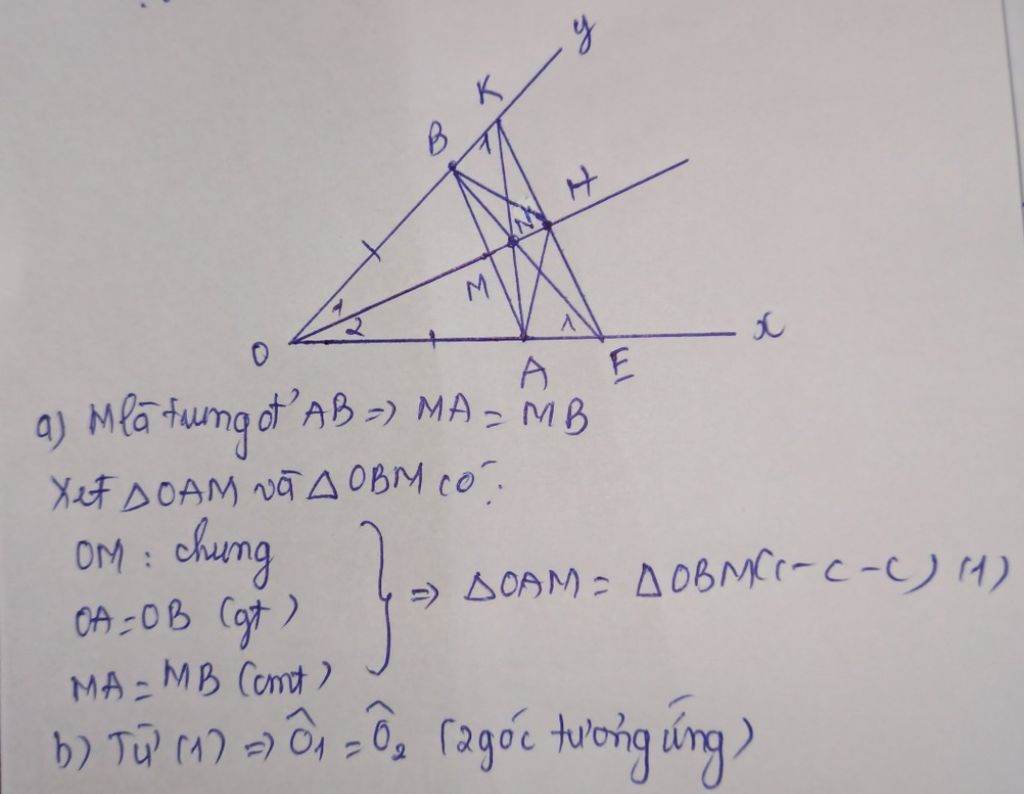 y
K
B
1
H
N
M
1
2
1
x
O
A
E
a) M là trung đ' AB => MA = MB
Xét △OAM và △OBM có:
OM : chung
OA = OB (gt)
MA = MB (cmt)
=> △OAM = △OBM (c-c-c) (1)
b) Từ (1) => Ô₁ = Ô₂ (2 góc tương ứng)